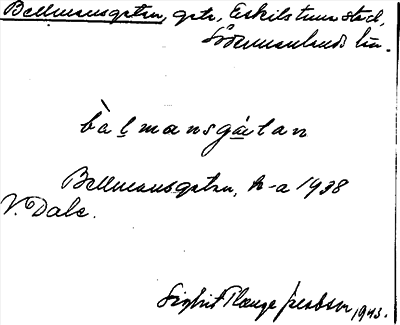 Bellmansgatan, gata, Eskilstuna stad,
Södermanlands län.
bàḷmansgátan
Bellmansgatan, k-a 1938
V. Dale.
Sigbrit Plænge Jacobson, 1943.